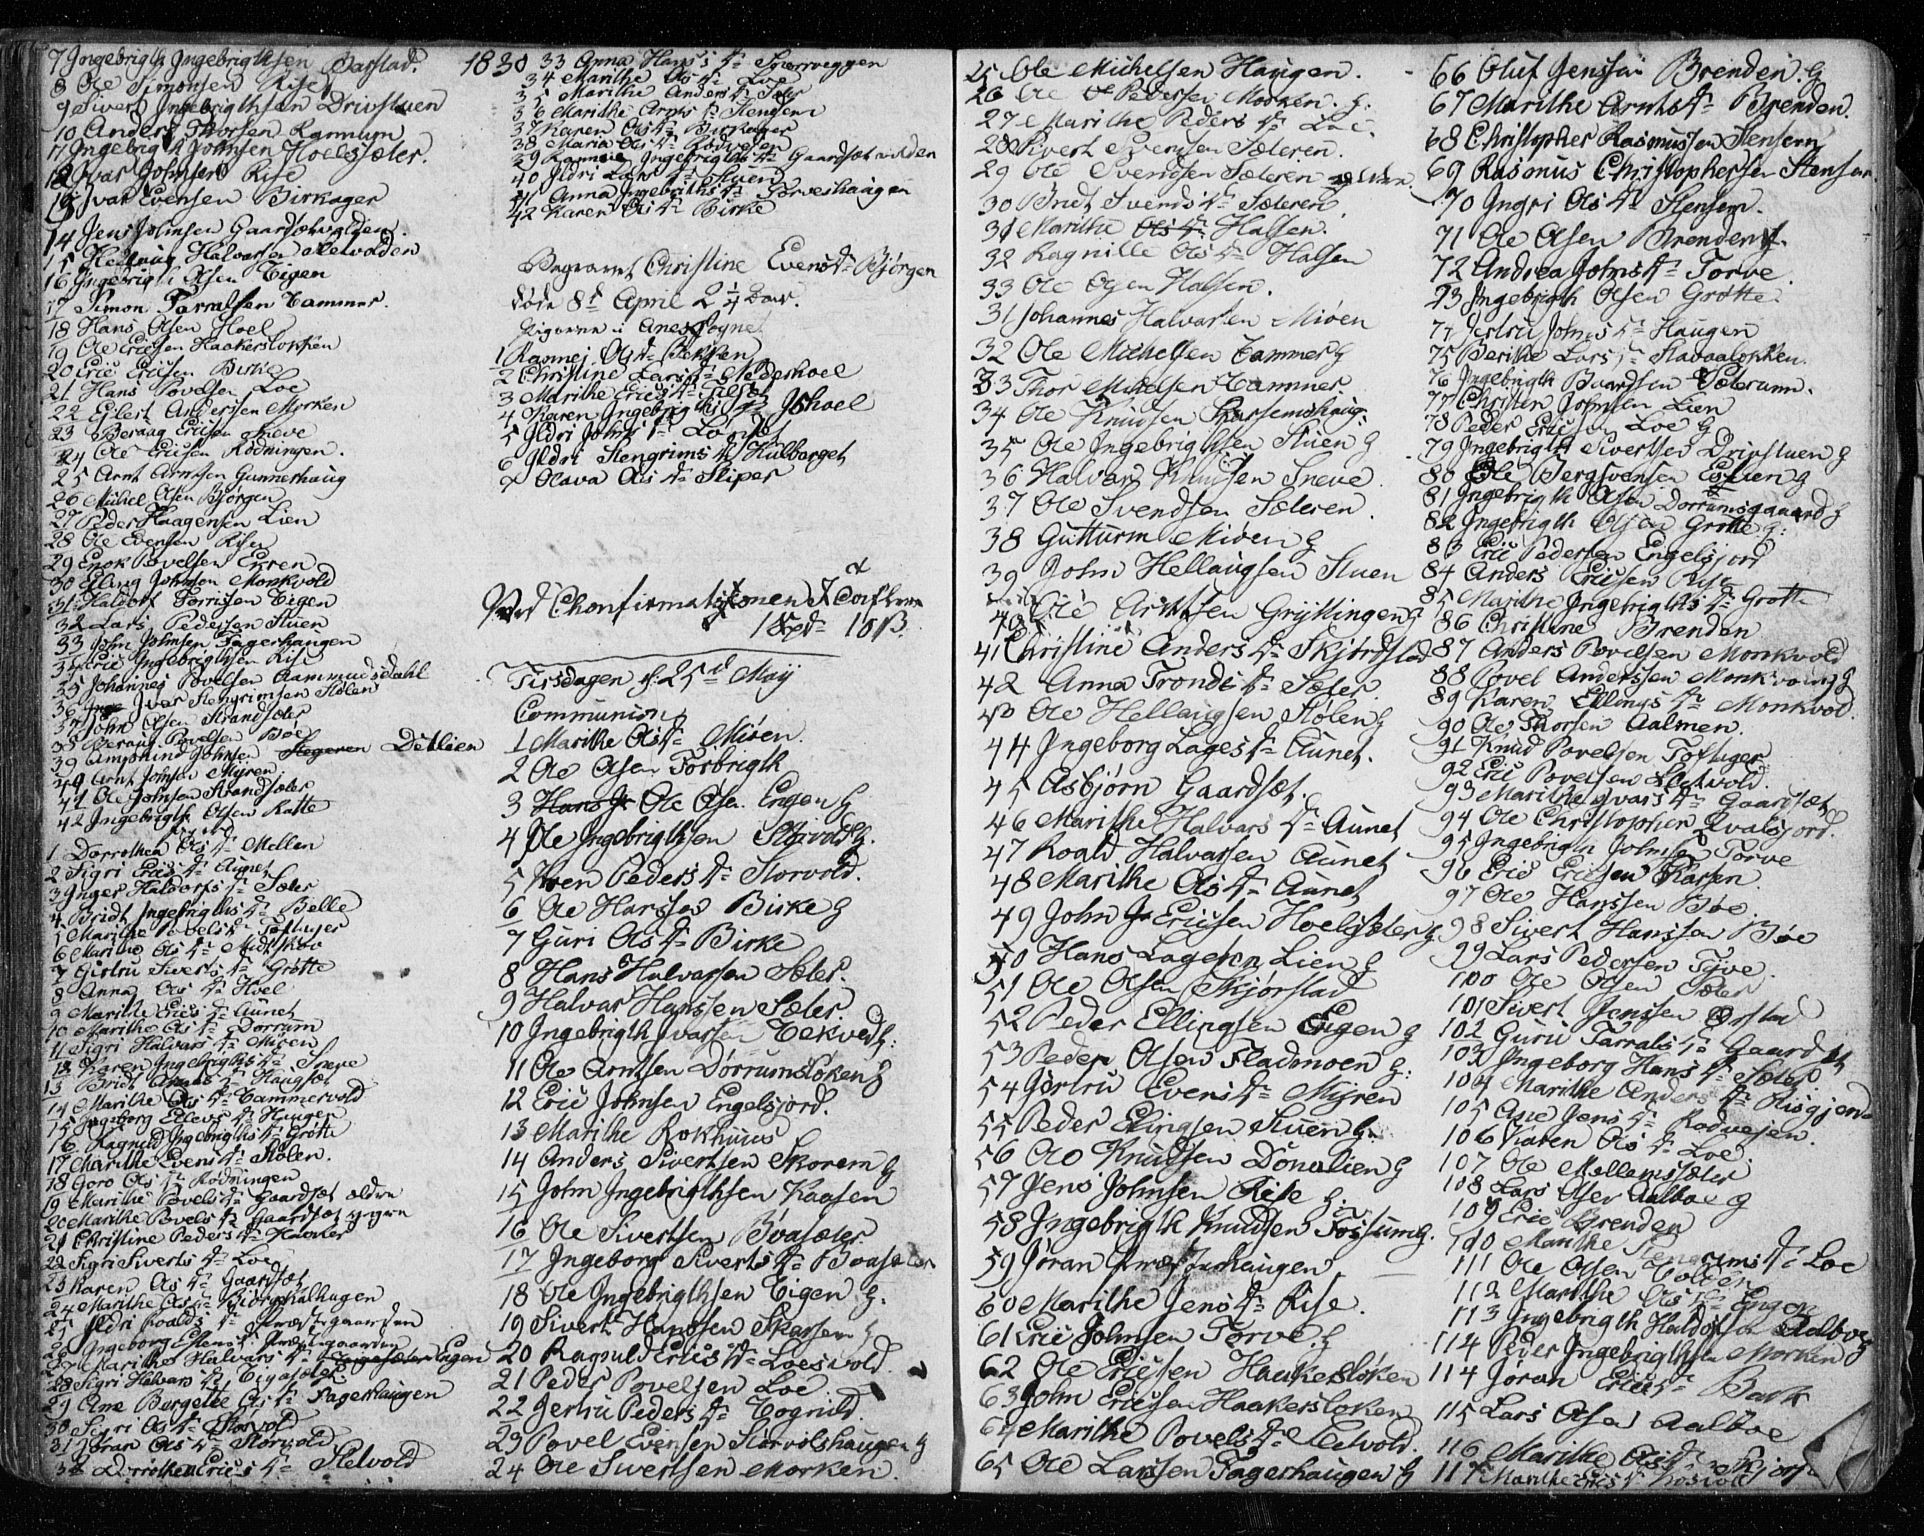 7 Ingebrigth Ingebrigthsen Barstad.
8 Ole Simonsen Rise
9 Sivert Ingebrigthsen Drivstuen
10 Anders Thorsen Rannum
11 Ingebrigth Johnsen Hoelssæter.
12 Ivar Johnsen Rise
13 Ivar Evensen Birkager
14 Jens Johnsen Gaardsætvolden.
15 Hellaug Halvarsen
16 Ingebrigth Olsen Eigen
17 Simon Taralsen Tammer.
18 Hans Olsen Hoel
19 Ole Ericsen Haakersløkken
20 Eric Ericsen Birke
21 Hans Povelsen Loe
22 Eilert Anderssen Myrken
23 Beraag Ericsen Sneve
24 Ole Ericsen Rødningen.
25 Arnt Arntsen Gunnershaug
26 Michel Olsen Bjørgen
27 Peder Haagensen Lien
28 Ole Evensen Risen
29 Enok Povelsen Ekren
30 Elling Johnsen Monkvold
31 Haldorf Torrisen Eigen
32 Lars Pedersen Stuen
33 John Johnsen Fagerhaugen
34 Eric Ingebrigthsen Rise
35 Johannes Povelsen Aammundsdahl
36 Ivar Stengrimsen Stølen
37 John Olsen Strandsæter
38 Beraag Povelsen Bøe
39 Amphind Johnsen Ditlien
40 Arnt Johnsen Myren
41 Ole Johnsen Strandsæter
42 Ingebrigth Olsen Ratte
1 Dorrothea Ols Dr Mellen
2 Sigri Erics Dr Aunet
3 Inger Haldorfs Dr Sæter
4 Bridt Ingebrigths Dr Belle
5 Marithe Povels Dr
6 Marithe Ols Dr Midtskov
7 Giertru Siverts Dr Grøtte
8 Anna Ols Dr Hoel
9 Marithe Erics Dr Aunet
10 Marithe Ols Dr Dorrum
11 Sigri Halvars Dr Mioen
12 Karen Ingebrigths Dr Sneve
13 Bridt Arnts Dr Haugset
14 Marithe Ols Dr Tammervold
15 Ingeborg Ellevs Dr Haugen
16 Ragnild Ingebrigths Dr Grøtte
17 Marithe Evens Dr Stølen.
18 Goro Ols Dr Rødningen
19 Marithe Povels Dr Gaardsæt ældre
20 Marithe Povels Dr Gaardsæt yngre
21 Christine Peders Dr Haaker
22 Sigri Siverts Dr Loe
23 Karen Ols Dr Gaardsæt
24 Marithe Ols Dr Bjørndalhagen
25 Ildri Roalds Dr Præstegaarden
26 Ingeborg Præstegaarden
27 Marithe Halvars Dr Engen
28 Sigri Halvars Dr
29 Ane Burgette Ols Dr Fagerhaugen
30 Sigri Ols Dr Storvold
31 Jøran Ols Dr Storvold
32 Dorrothea Erics Dr Sletvold
1830
33 Anna Hans's Dr Sporveggen
34 Marithe Ols Dr Loe
35 Marithe Anders Dr Sæter
36 Marithe Arnts Dr Stengen
37 Karen Ols Dr Birkager
38 Maria Ols Dr Rødvesen
39 Ingebrigths Dr Gaardsætvolden
40 Ildri Lars Dr Stuen
41 Anna Ingebrigths Dr Torveshaugen
42 Karen Ols Dr Birke
Christine Evens Dr Bjørgen
døde 8d April 2 1/4 Aar.
Pigerne i
1 Rasmei Ols Dr Bekken
2 Christine Lars Dr Nederhoel
3 Marithe Erics Dr
4 Karen Ingebrigths Dr Ishoel
5 Ildri Johns Dr
6 Ildri Stengrims Dr Hulberget
7 Olava Ols Dr Skiper
Ved Chonfirmationen
1 Spd 10 ß.
Tirsdagen d: 25d Maij
Communion
1 Marithe Ols Dr Mioen
2 Ole Olsen Forbrigth
3 Ole Olsen Engen G
4 Ole Ingebrigthsen
5 Karen Peders Dr Storvold.
6 Ole Hanssen Birke G
7 Guri Ols Dr Birke
8 Hans Halvarsen Sæter.
9 Halvar Hanssen Sæter.
10 Ingebrigth Ivarsen Eekved G:
11 Ole Arntsen Dørrumsløken G
12 Eric Johnsen Engelsjord.
13 Marithe Rokhuus
14 Anders Sivertsen Skorem G
15 John Ingebrigthsen Kaasen
16 Ole Sivertsen Boasæter
17 Ingeborg Siverts Dr Boasæter
18 Ole Ingebrigthsen Eigen G.
19 Sivert Hanssen Skarsem G
20 Ragnild Erics Dr Loesvold.
21 Peder Povelsen Loe
22 Jertru Peders Dr Rognild.
23 Povel Evensen Storvolshaugen G
24 Ole Sivertsen Morken
25 Ole Michelsen Haugen.
26 Ole Pedersen Morken. G.
27 Marithe Peders Dr Loe.
28 Sivert Svendsen Sæteren.
29 Ole Svendsen Sæteren
30 Bridt Svends Dr Sæteren
31 Marithe Ols Dr Halsen.
32 Ragnille Ols Dr Halsen
33 Ole Halsen.
31 Johannes Halvarsen Mioen
32 Ole Michelsen Tammer G
33 Thor Michelsen Tammer
34 Ole Knudsen
35 Ole Ingebrigthsen Stuen G
36 Halvar Knudsen Sneve
37 Ole Svendsen Sæteren.
38 Gutturm Mioen G
39 John Hellaugsen Stuen
40 Ole Arntsen Gryttingen G
41 Christine Anders Dr Skjørdstad
42 Anna Tronds Dr Sæter.
43 Ole Hellaugsen Stølen G
44 Ingeborg Lages Dr Aunet.
45 Asbjørn Gaardsæt.
46 Marithe Halvars Dr Aunet
47 Roald Halvarsen Aunet
48 Marithe Ols Dr Aunet
49 John Ericsen Hoelsæter G.
50 Hans Lagesen Lien G
51 Ole Olsen Skjørstad
52 Peder Ellingsen Eigen G
53 Peder Olsen Fladmoen G:
54 Gørtru Evens Dr Myren
55 Peder Ellingsen Stuen G.
56 Ole Knudsen Donalien G
57 Jens Johnsen Rise G.
58 Ingebrigth Knudsen Fossum G.
59 Jøran
60 Marithe Jens Dr Rise.
61 Eric Johnsen Torve. G
62 Ole Ericsen Haakersløken
63 John Ericsen Haakersløken
64 Marithe Povels Dr Sletvold.
65 Ole Larssen Fagerhaugen G
66 Oluf Jenssen Brenden. G
67 Marithe Arnts Dr Brenden.
68 Christopher Rasmussen Stensem
69 Rasmus Christophersen Stensem.
70 Ingri Ols Dr Stensem.
71 Ole Olsen Brenden G.
72 Andrea Johns Dr Torve.
73 Ingebrigth Olsen Grøtte.
74 Jertru Johns Dr Haugen
75 Berithe Lars Dr
76 Ingebrigth Baardsen Sæterum.
77 Christen Johnsen Lien
78 Peder Ericsen Loe G
79 Ingebrigth Sivertsen Drivstuen G
80 Ole Bergsvensen G
81 Ingebrigth Olsen Dorrumsgaard G
82 Ingebrigth Olsen Grøtte G:
83 Eric Pedersen Engelsjord
84 Anders Ericsen Rise
85 Marithe Ingebrigths Dr Grøtte
86 Christine Brenden
87 Anders Povelsen Monkvold
88 Povel Anderssen Monkvold G
89 Karen Ellings Dr Monkvold.
90 Ole Thorsen Aalmen.
91 Knud Povelsen Toftager
92 Eric Povelsen Sletvold.
93 Marithe Ivars Dr Gaardsæt
94 Ole Christophersen Qvalsjord.
95 Ingebrigth Johnsen Torve
96 Eric Ericsen Kaasen.
97 Ole Hanssen Bøe
98 Sivert Hanssen Bøe
99 Lars Pedersen Tyve
100 Ole Olsen Sæter
101 Sivert Jenssen Ørstad
102 Guru Tarrals Dr Gaardsæt
103 Ingeborg Hans Dr Sæter.
104 Marithe Anders Dr Risgjerde
105 Ane Jens Dr Rødvesen.
106 Karen Ols Dr Loe.
107 Ole Mellemsæter
108 Lars Olsen Aalboe G
109 Eric Brenden
110 Marithe Stengrims Dr Loe
111 Ole Olsen Volden
112 Marithe Ols Dr Engen
113 Ingebrigth Haldorsen Aalboe G
114 Peder Ingebrigthsen Morken G
114 Jøran Erics Dr Bark
115 Lars Olsen Aalboe
116 Marithe Ols Dr
117 Marithe Erics Dr Loesvold